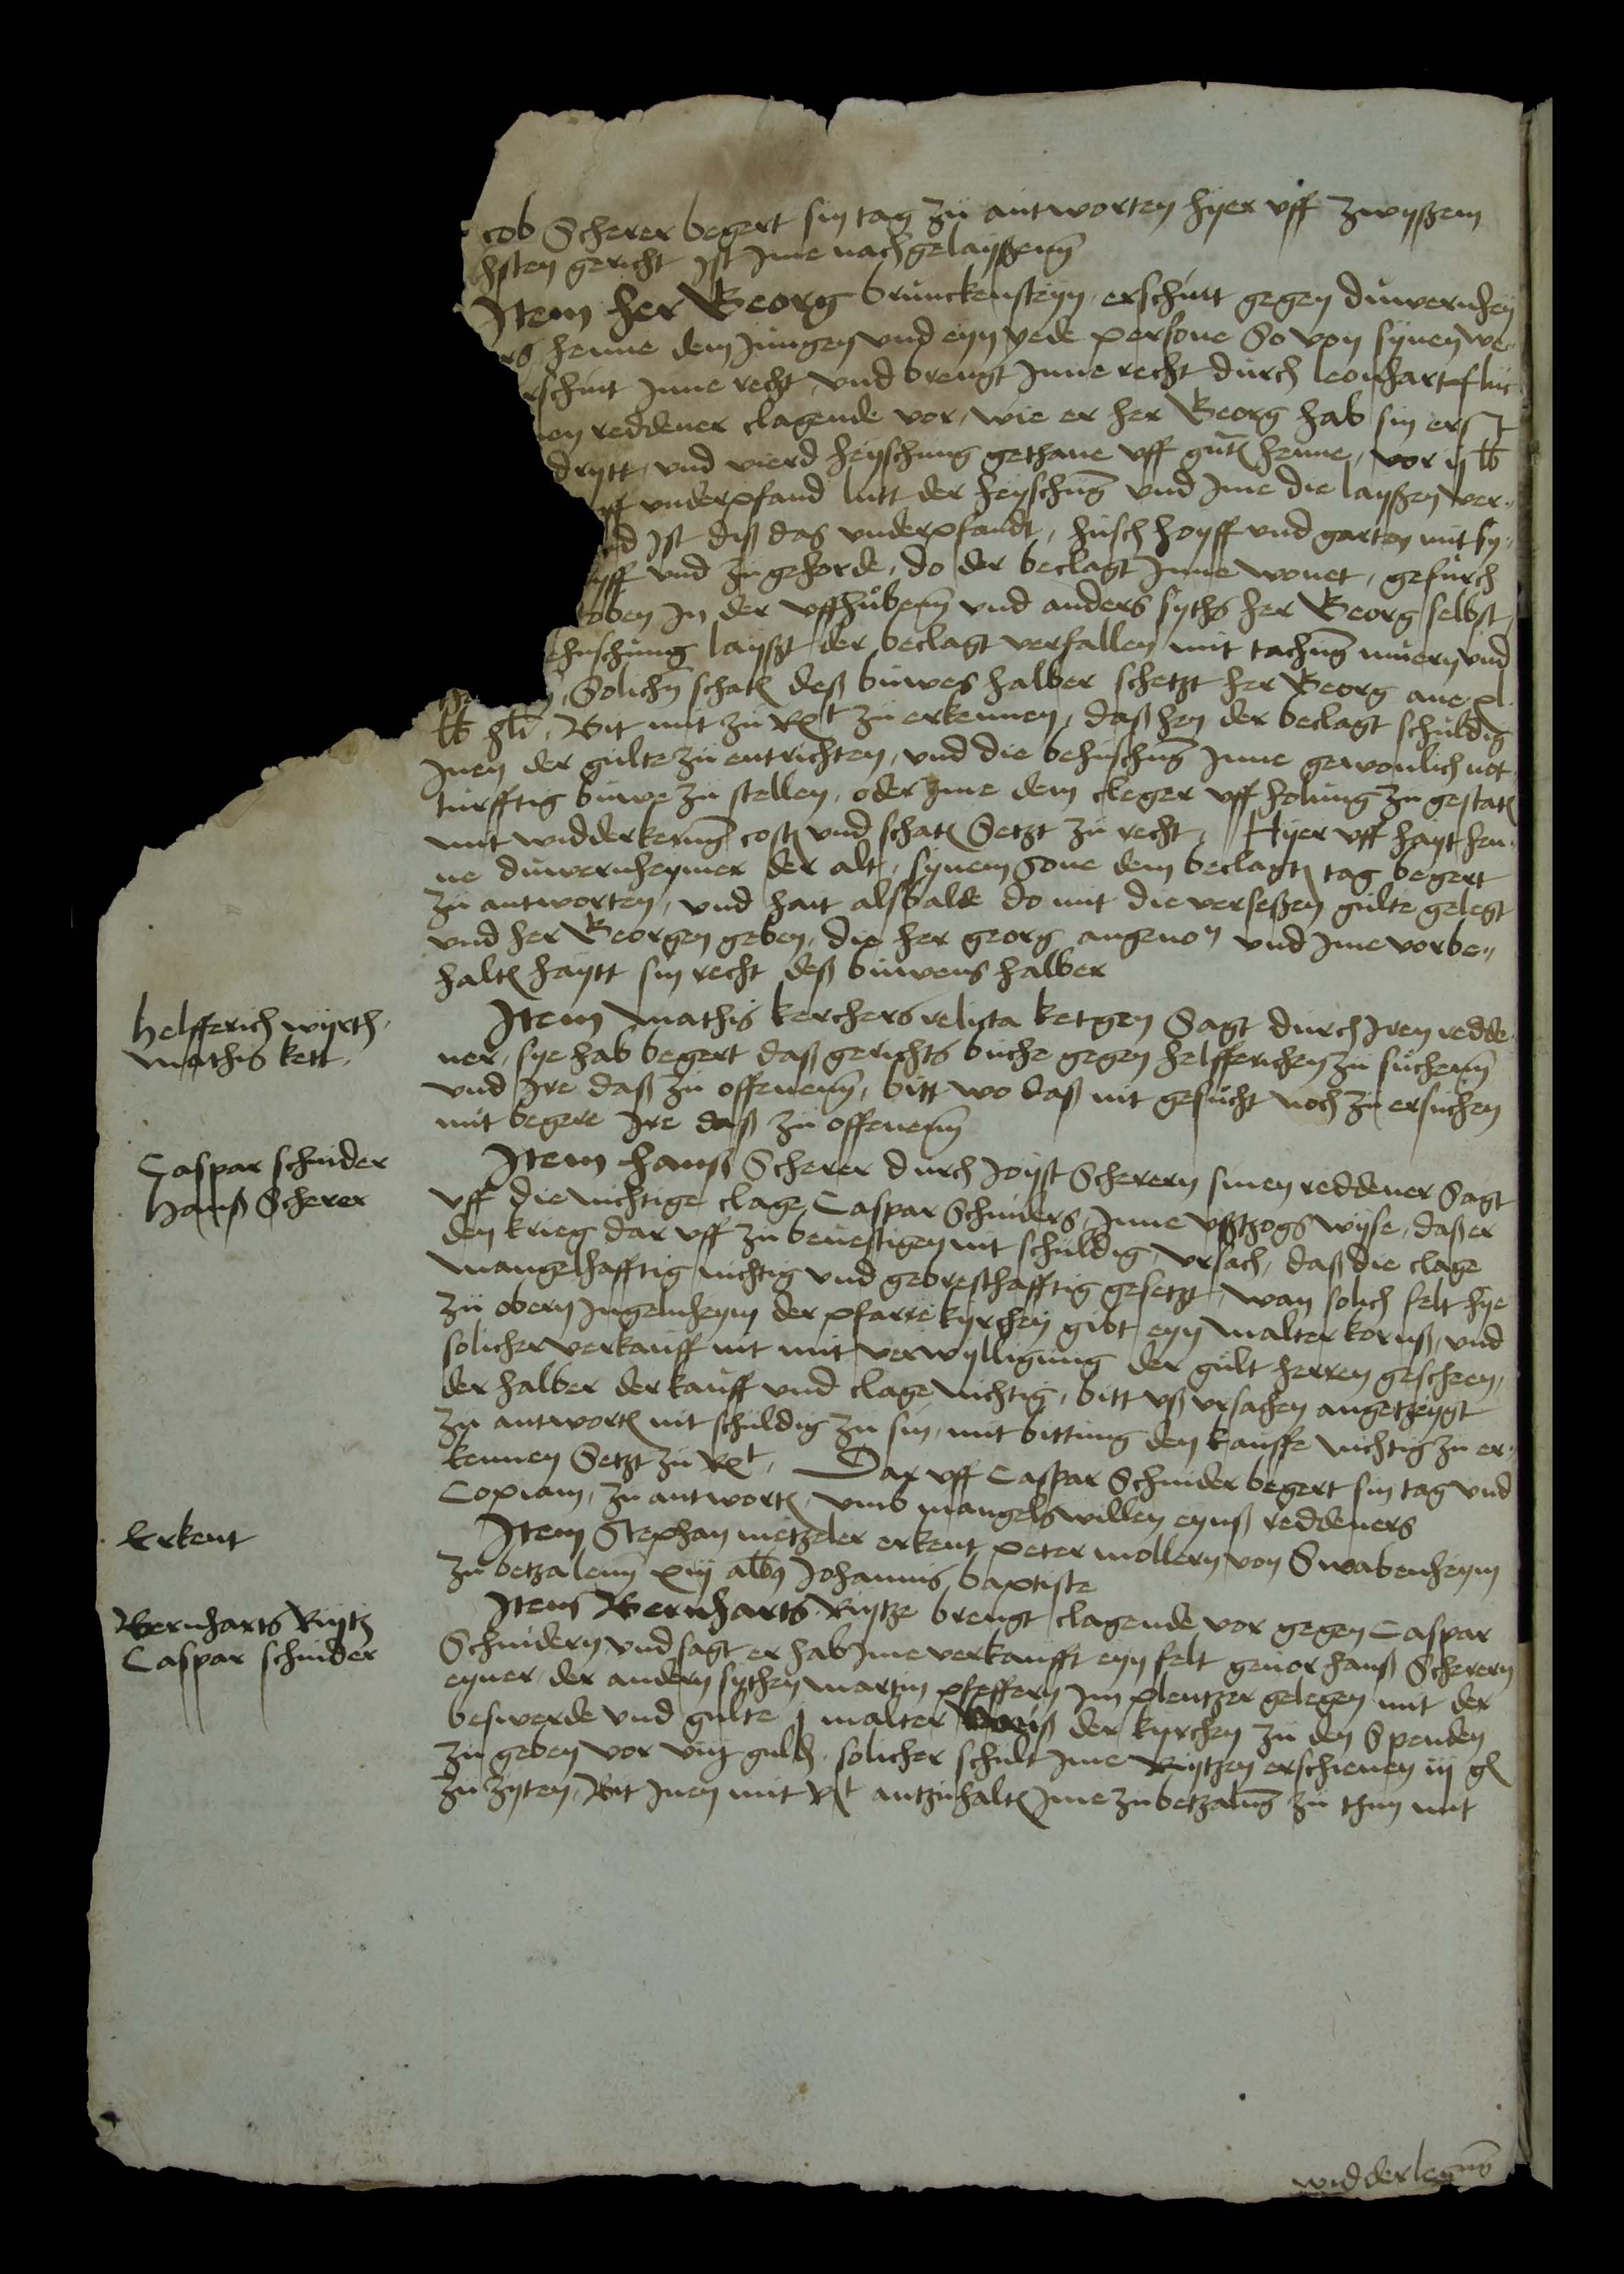 cob Scherer begert sin tag zü antworten hyer vff zwyßem
hsten gericht Ist Ime nachgelayßenn
Item her Georg brünckensteyn erschint gegen düwernhey
rg henne dem Jüngen vnd eyn yede persone So von synen we-
rschint Inne recht vnd brengt Inne recht dürch leonhart flüc
nen reddener clagende vor, wie er her Georg hab sin erst
drytt, vnd vierd heyschüng gethane vff henne, vor ij lb
vff vnderpfand lutt der heyschung vnd Ime die layßen ver-
d Ist diß das vnderpfandt, hüsch hoyff vnd garten mit sy-
yff vnd zügehorde, do der beclagt Inne wonet, gefürch
oben In der vffhübenn vnd anders syths her Georg selbst,
ehuschüng layßt der beclagt verfallen mit tachung müern vnd
Solichn schaten deß büwes halber schetzt her Georg ane xl
lb hlr, Bit mit zü Rt zü erkennen, daß hen der beclagt schüldig
Inen der gülte zü entrichten, vnd die behüschung Inne gewonlich not-
türfftig büwe zü stellen, oder Ime dem cleger vff holüng zü gestaten
mit widderkerung costen vnd schaten Setzt zü recht, Hyer vff hayt hen-
ne düwernheymer der alt, synem Sone dem beclagten tag begert
zü antworten, vnd hait alsbalde do mit die verseßen gülte gelegt
vnd her Georgen geben, die her georg angenon vnd Ime vorbe-
halten haytt sin recht deß büwens halber
helfferich wyrth
Mathis kett
Item Mathis kerchers relicta ketgen Sagt dürch Iren redde-
ner, sye hab begert daß gerichts büche gegen helfferichen zü süchenn
vnd Ire daß zü offenenn, bitt wo daß nit gesücht noch zü ersüchen
mit begere Ire daß zü offenenn
Caspar schnider
Hanß Scherer
Item Hanß Scherer dürch Joyst Scherern sinen reddener Sagt
vff die nichtige clage Caspar Schniders, Inne vßtzogs wyse, daß er
den krieg dar vff zü beuestigen nit schüldig, vrsach, daß die clage
mangelhafftig nichtig vnd gebresthafftig gesetzt, wan solich felt hye
zü obern Ingelnheym der pfarre kyrchen gibt eyn malter kornß, vnd
solicher verkauff nit mit verwylligüng der gült herren gescheen,
der halber der kauff vnd clage nichtig, bitt vß vrsachen angetzeygt
zü antworten nit schüldig zü sin, mit bittüng den kauffe nichtig zü er-
kennen Setzt zü Rt, Dar vff Caspar Schnider begert sin tag vnd
Copiam, zü antworten, vmb mangels willen eynß reddeners
Erkent
Item Stephan metzeler erkent peter mollern von Swabenheym
zü betzalenn xiij albus Johannis baptiste
Bernharts Rüytz
Caspar schnider
Item Bernharts Ruytze brengt clagende vor gegen Caspar
Schnidern vnd sagt er hab Ime verkaufft eyn felt geüor hanß Scherern
eyner, der andern sythen Martin pfeffern Im plentzer gelegen mit der
beswerde vnd gülte j malter kornß der kyrchen zü den Spenden
zü geben vor viij gulden, solicher schült Ime Ruytzen erschienen iij gl
zü zyten, Bit Inen mit Rt antzühalten Ime zübetzalung zü thun mit
widderlegung